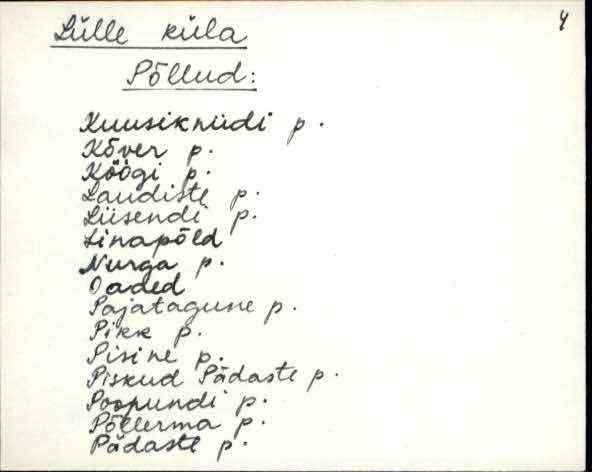 4
Lülle küla
Põllud:
Kuusiknüdi p.
Kõver p.
Köögi p.
Laudiste p.
Liisendi p.
Linapõld
Nurga p.
Oaded
Pajatagune p.
Pikk p.
Pisine p.
Piskud Pädaste p.
Poopundi p.
Põllerma p.
Pädaste p.